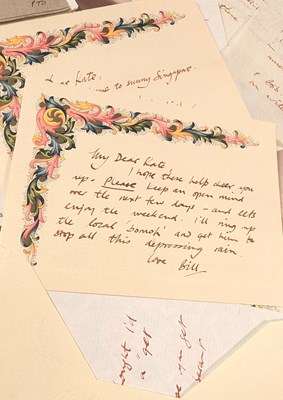 PTO
Kate.
me to sunny Singapore.
My Dear Kate
I hope these help cheer you
up. - Please keep an open mind
over the next few days - and lets
enjoy the weekend. I'll ring up
the local 'bomoh' and get him to
stop all this depressing rain.
love Bill
I'll
get
you get